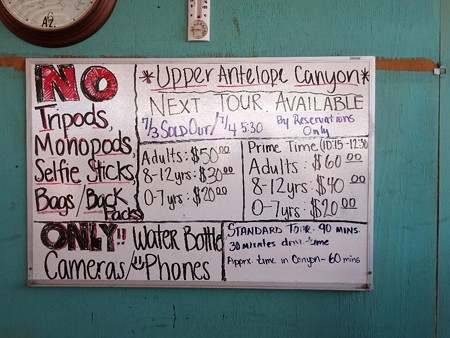 AZ.
NO
Tripods,
Monopods
Selfie Sticks,
Bags/Back
Packs
*Upper Antelope Canyon*
NEXT TOUR AVAILABLE
7/3 SOLD OUT/7/4 5:30
By Reservations
Only
Adults: $50.00
8-12yrs: $30.00
0-7yrs: $20.00
Prime Time (10:15-12:30
Adults: $60.00
8-12yrs: $40.00
0-7yrs: $20.00
ONLY!! Water Bottle
Cameras/Phones
STANDARD TOUR- 90 MINS.
30 minutes drive time
Approx. time in Canyon- 60 mins